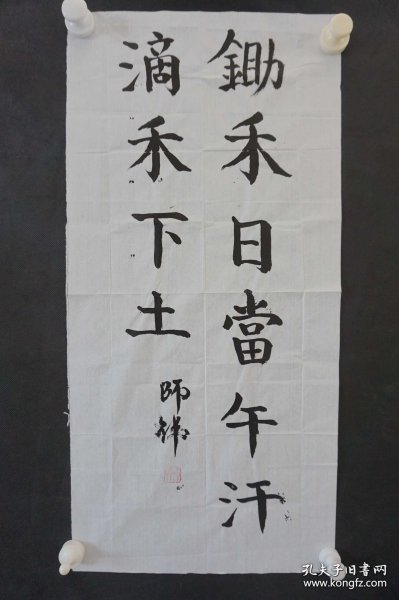 鋤禾日當午汗
滴禾下土
師
孔夫子旧書网
www.kongfz.com